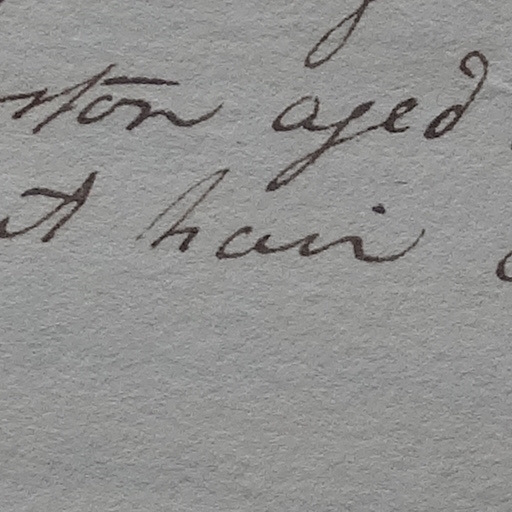 ston aged
t hair